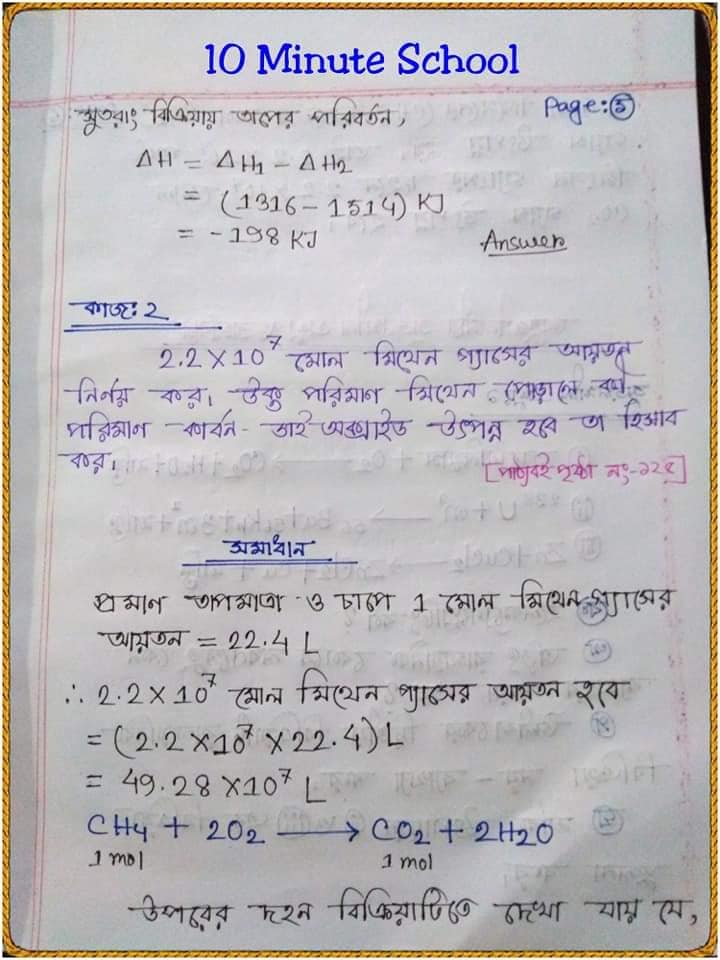 10 Minute School
Page: 5
সুতরাং বিক্রিয়ায় তাপের পরিবর্তন,
ΔH = ΔH1 - ΔH2
= (1316 - 1514) KJ
= -198 KJ
Answer
কাজ: ২
2.2 × 10⁷ মোল মিথেন গ্যাসের আয়তন
নির্ণয় কর। উক্ত পরিমাণ মিথেন পোড়ালে কী
পরিমাণ কার্বন-ডাই অক্সাইড উৎপন্ন হবে তা হিসাব
কর।
[পাঠ্যবই পৃষ্ঠা নং-১২৫]
সমাধান
প্রমাণ তাপমাত্রা ও চাপে 1 মোল মিথেন গ্যাসের
আয়তন = 22.4 L
∴ 2.2 × 10⁷ মোল মিথেন গ্যাসের আয়তন হবে
= (2.2 × 10⁷ × 22.4) L
= 49.28 × 10⁷ L
CH4 + 2O2 ⟶ CO2 + 2H2O
1 mol 1 mol
উপরের দহন বিক্রিয়াটিতে দেখা যায় যে,